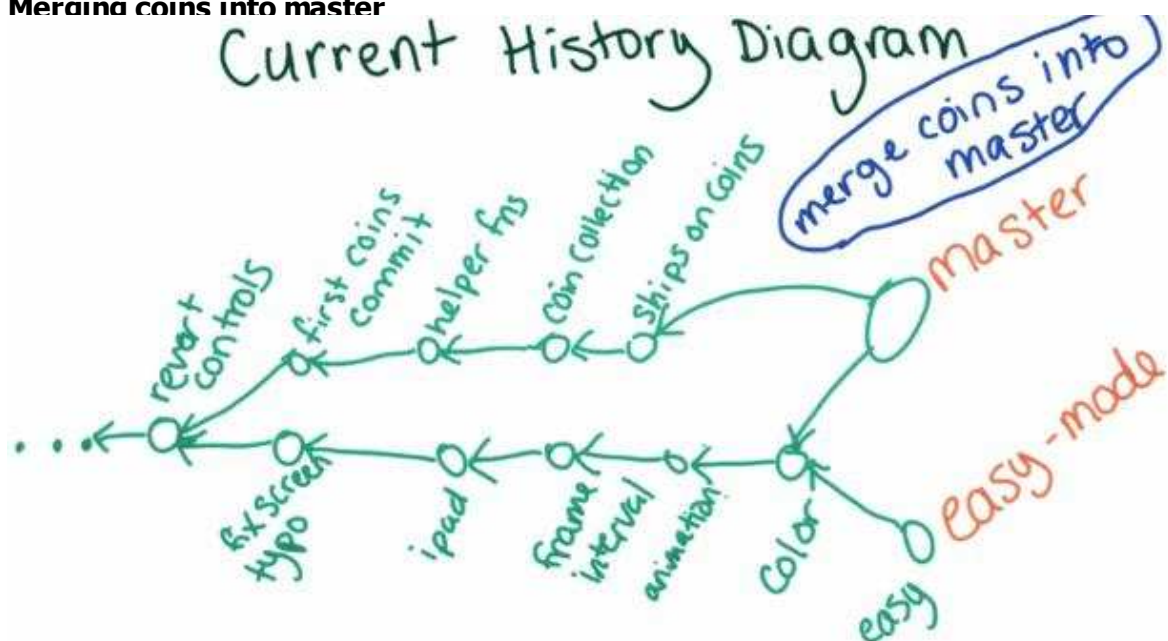 Merging coins into master
Current History Diagram
merge coins into
master
master
revert
controls
first coins
commit
helper fns
coin collection
ships on coins
fix screen
typo
ipad
frame
interval
animation
color
easy
easy-mode